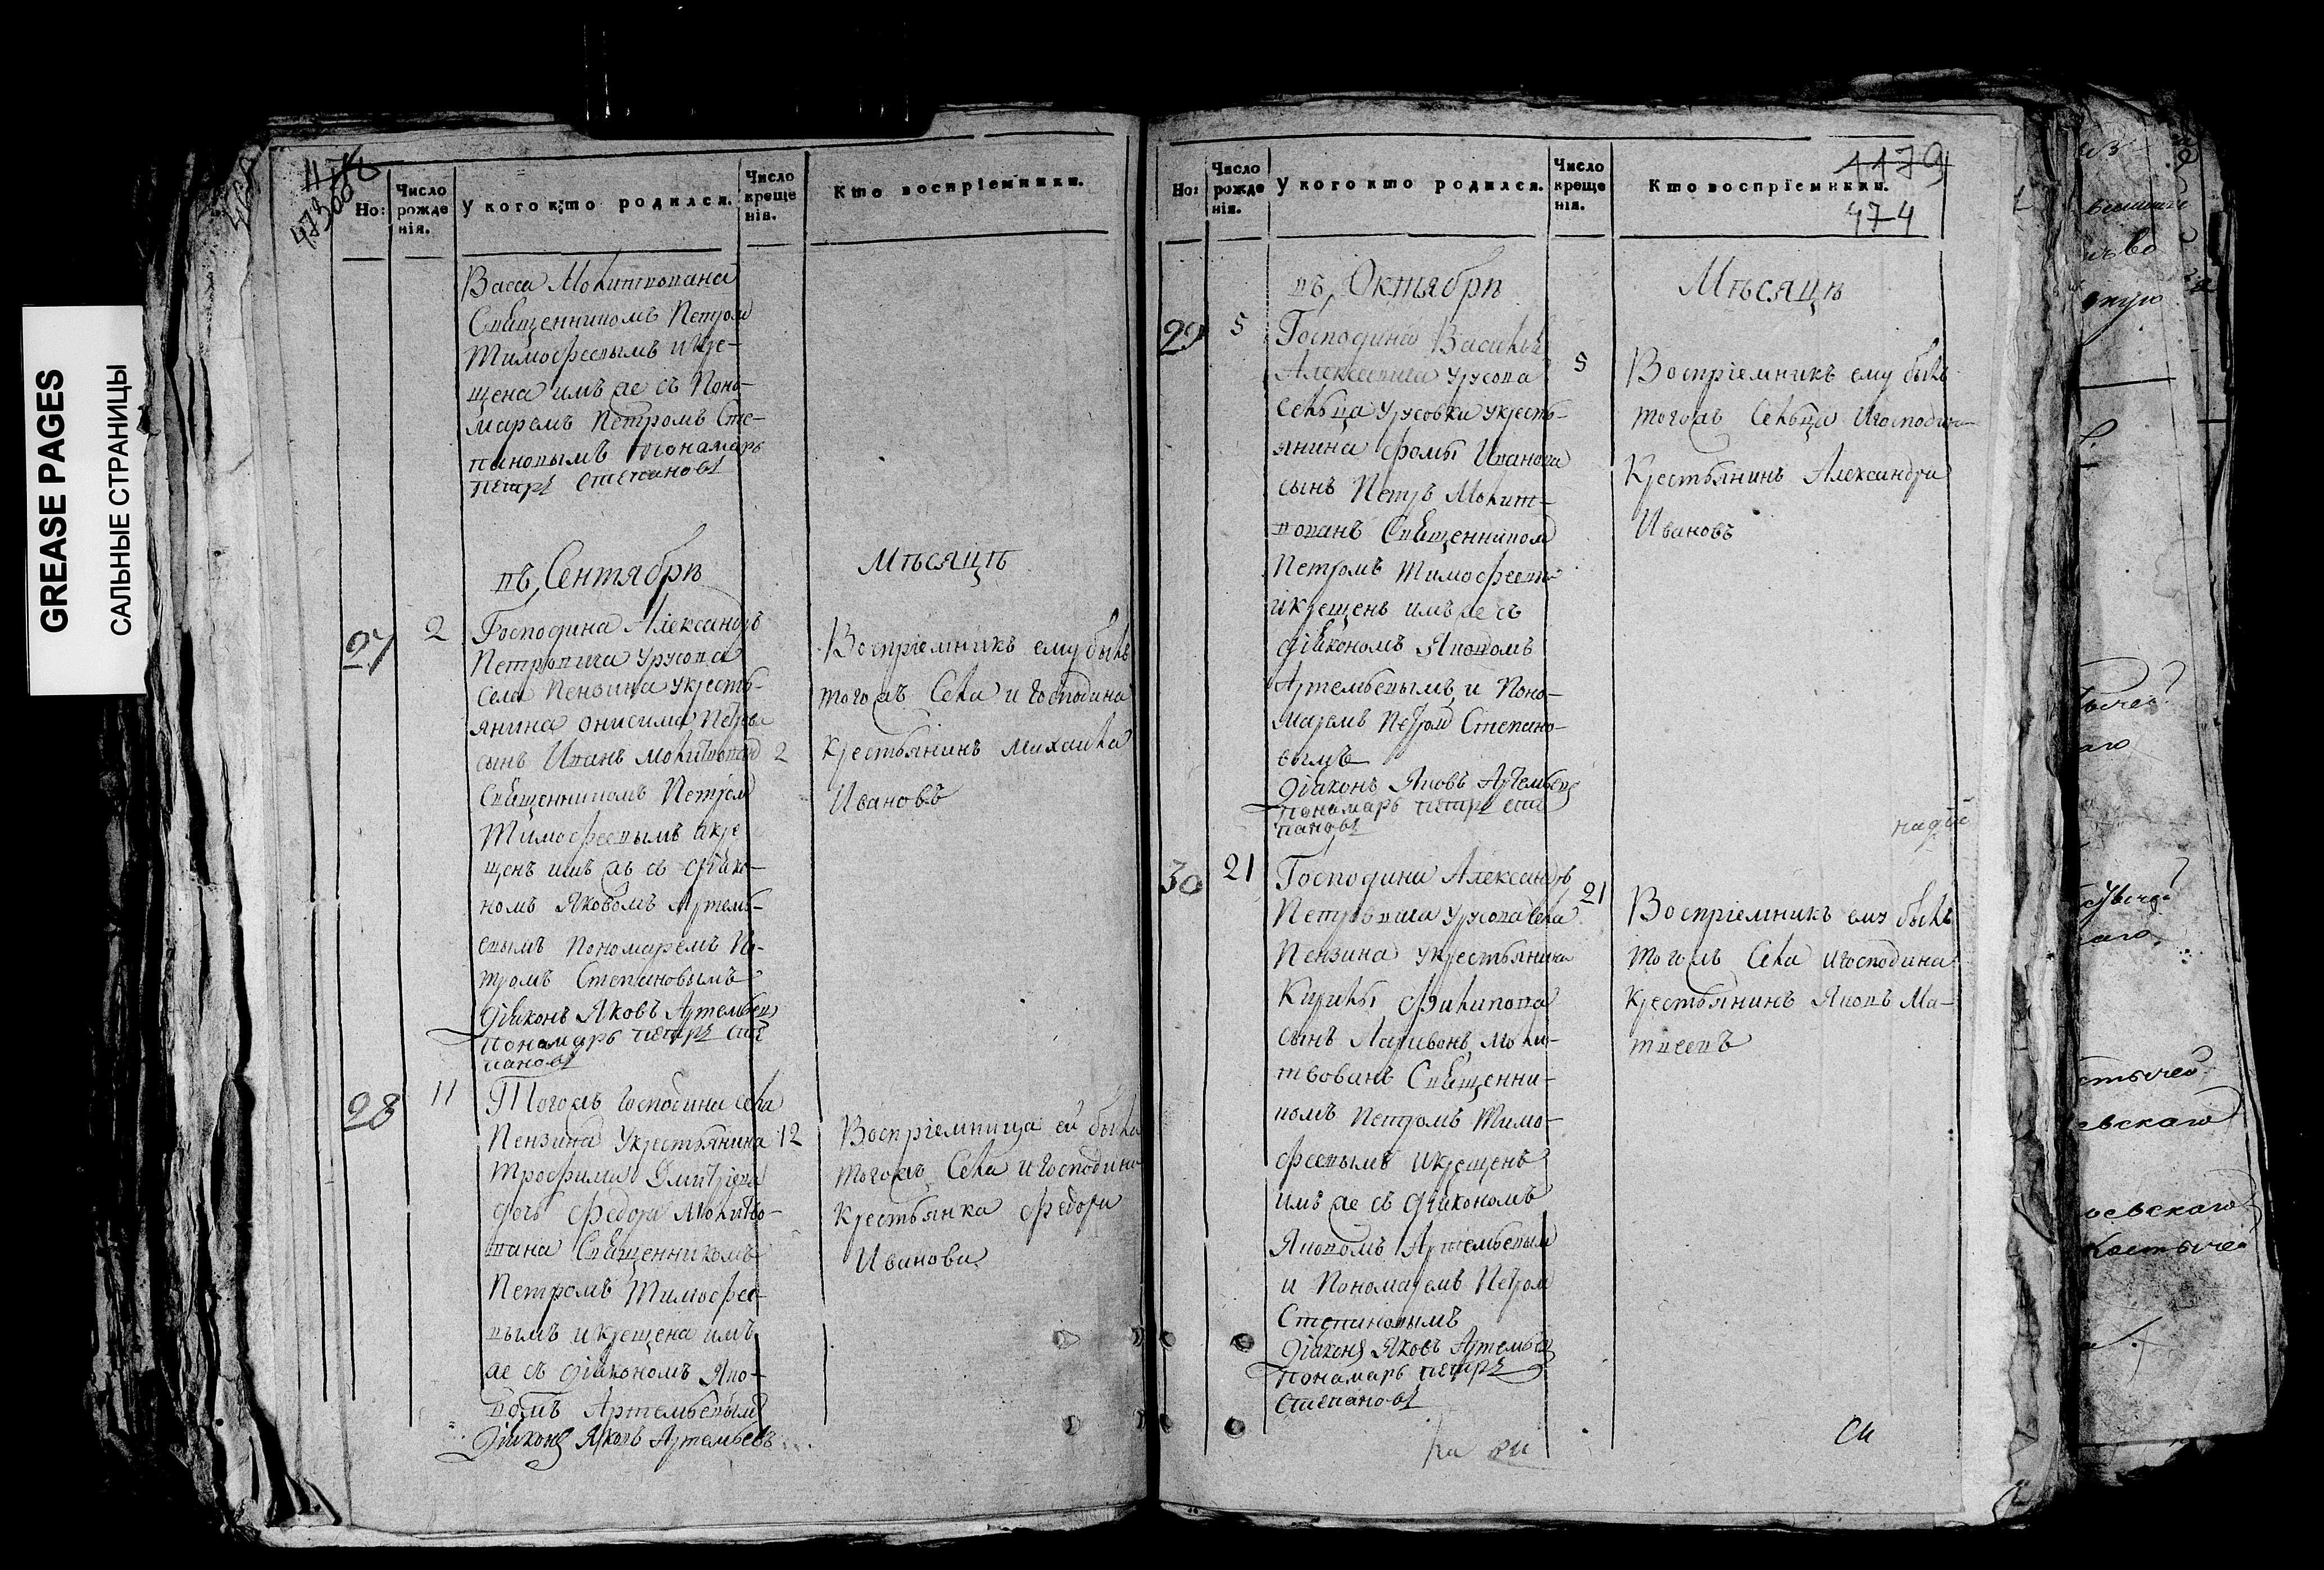 GREASE PAGES
САЛЬНЫЕ СТРАНИЦЫ
Но:
Число рожденія.
У кого кто родился.
Число крещенія.
Кто воспріемники.
Васса Молитвована
Священникомъ Петром
Тимофеевымъ и кре-
щена имъ же съ Поно-
маремъ Петромъ Сте-
пановымъ пономарь
петръ степановъ
въ Сентябрѣ
Мѣсяцѣ
27
2
Господина Александръ
Петровича Урусова
Села Пензина укресть-
янина Онисима Петрова
сынъ Иванъ молитвован
2
Священникомъ Петром
Тимофеевымъ икре
щенъ имъ жъ съ діако-
номъ Яковомъ Артемь-
евымъ Пономаремъ Пе-
тромъ Степановымъ
діаконъ Яковъ Артемьев
пономарь петръ сте
пановъ
Воспріемникъ ему былъ
тогожъ Села и Господина
Крестьянинъ Михайла
Ивановъ
28
11
Тогожъ Господина села
Пензина Укрестьянина
12
Трофима Дмитріева
дочь Федора Молитво-
вана Священникомъ
Петромъ Тимофее-
вымъ икрещена имъ
же съ діакономъ Яко-
вомъ Артемьевым
Діаконъ Яковъ Артемьевъ
Воспріемница ей была
тогожъ Села иГосподина
Крестьянка Федора
Иванова
1179
474
Но:
Число рожденія.
У кого кто родился.
Число крещенія.
Кто воспріемники.
въ Октябрѣ
Мѣсяцѣ
29
5
Господина Василья
Алексеевича Урусова
5
Сельца Урусовки укресть-
янина Фомы Иванова
сынъ Петръ Молит-
вованъ Священником
Петромъ Тимофеевы
икрещенъ имъ же съ
діакономъ Яковомъ
Артемьевымъ и Поно-
маремъ Петром Степано-
вымъ
Діаконъ Яковъ Артемьев
пономарь петръ сте
пановъ
Воспріемникъ ему былъ
тогожъ Сельца Игосподина
Крестьянинъ Александра
Ивановъ
30
21
Господина Александръ
Петровича Урусова Села
21
Пензина укрестьянина
Кирилы Филипова
сынъ Ларивонъ моли-
твованъ Священни-
комъ Петромъ Тимо-
феевымъ икрещенъ
имъ же съ діакономъ
Яковомъ Артемьевым
и Пономаремъ Петром
Степановымъ
Діаконъ Яковъ Артемьев
пономарь петръ
степановъ
Воспріемникъ ему былъ
тогожъ Села игосподина
Крестьянинъ Яковъ Ма-
твеевъ